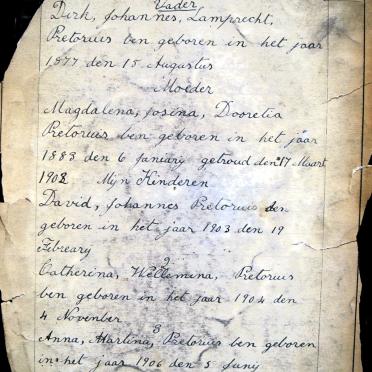 Vader
Dirk, Johannes, Lamprecht,
Pretorius ben geboren in het jaar
1877 den 15 Augustus
Moeder
Magdalena, Josina, Dooretia
Pretorius ben geboren in het jaar
1883 den 6 January getroud den 17 Maart
1902 Mijn Kinderen
David, Johannes Pretorius den
geboren in het jaar 1903 den 19
Febreary
2
Catherina, Wellemina, Pretorius
ben geboren in het jaar 1904 den
4 November
3
Anna, Martina, Pretorius ben geboren
in het jaar 1906 den 5 Juny